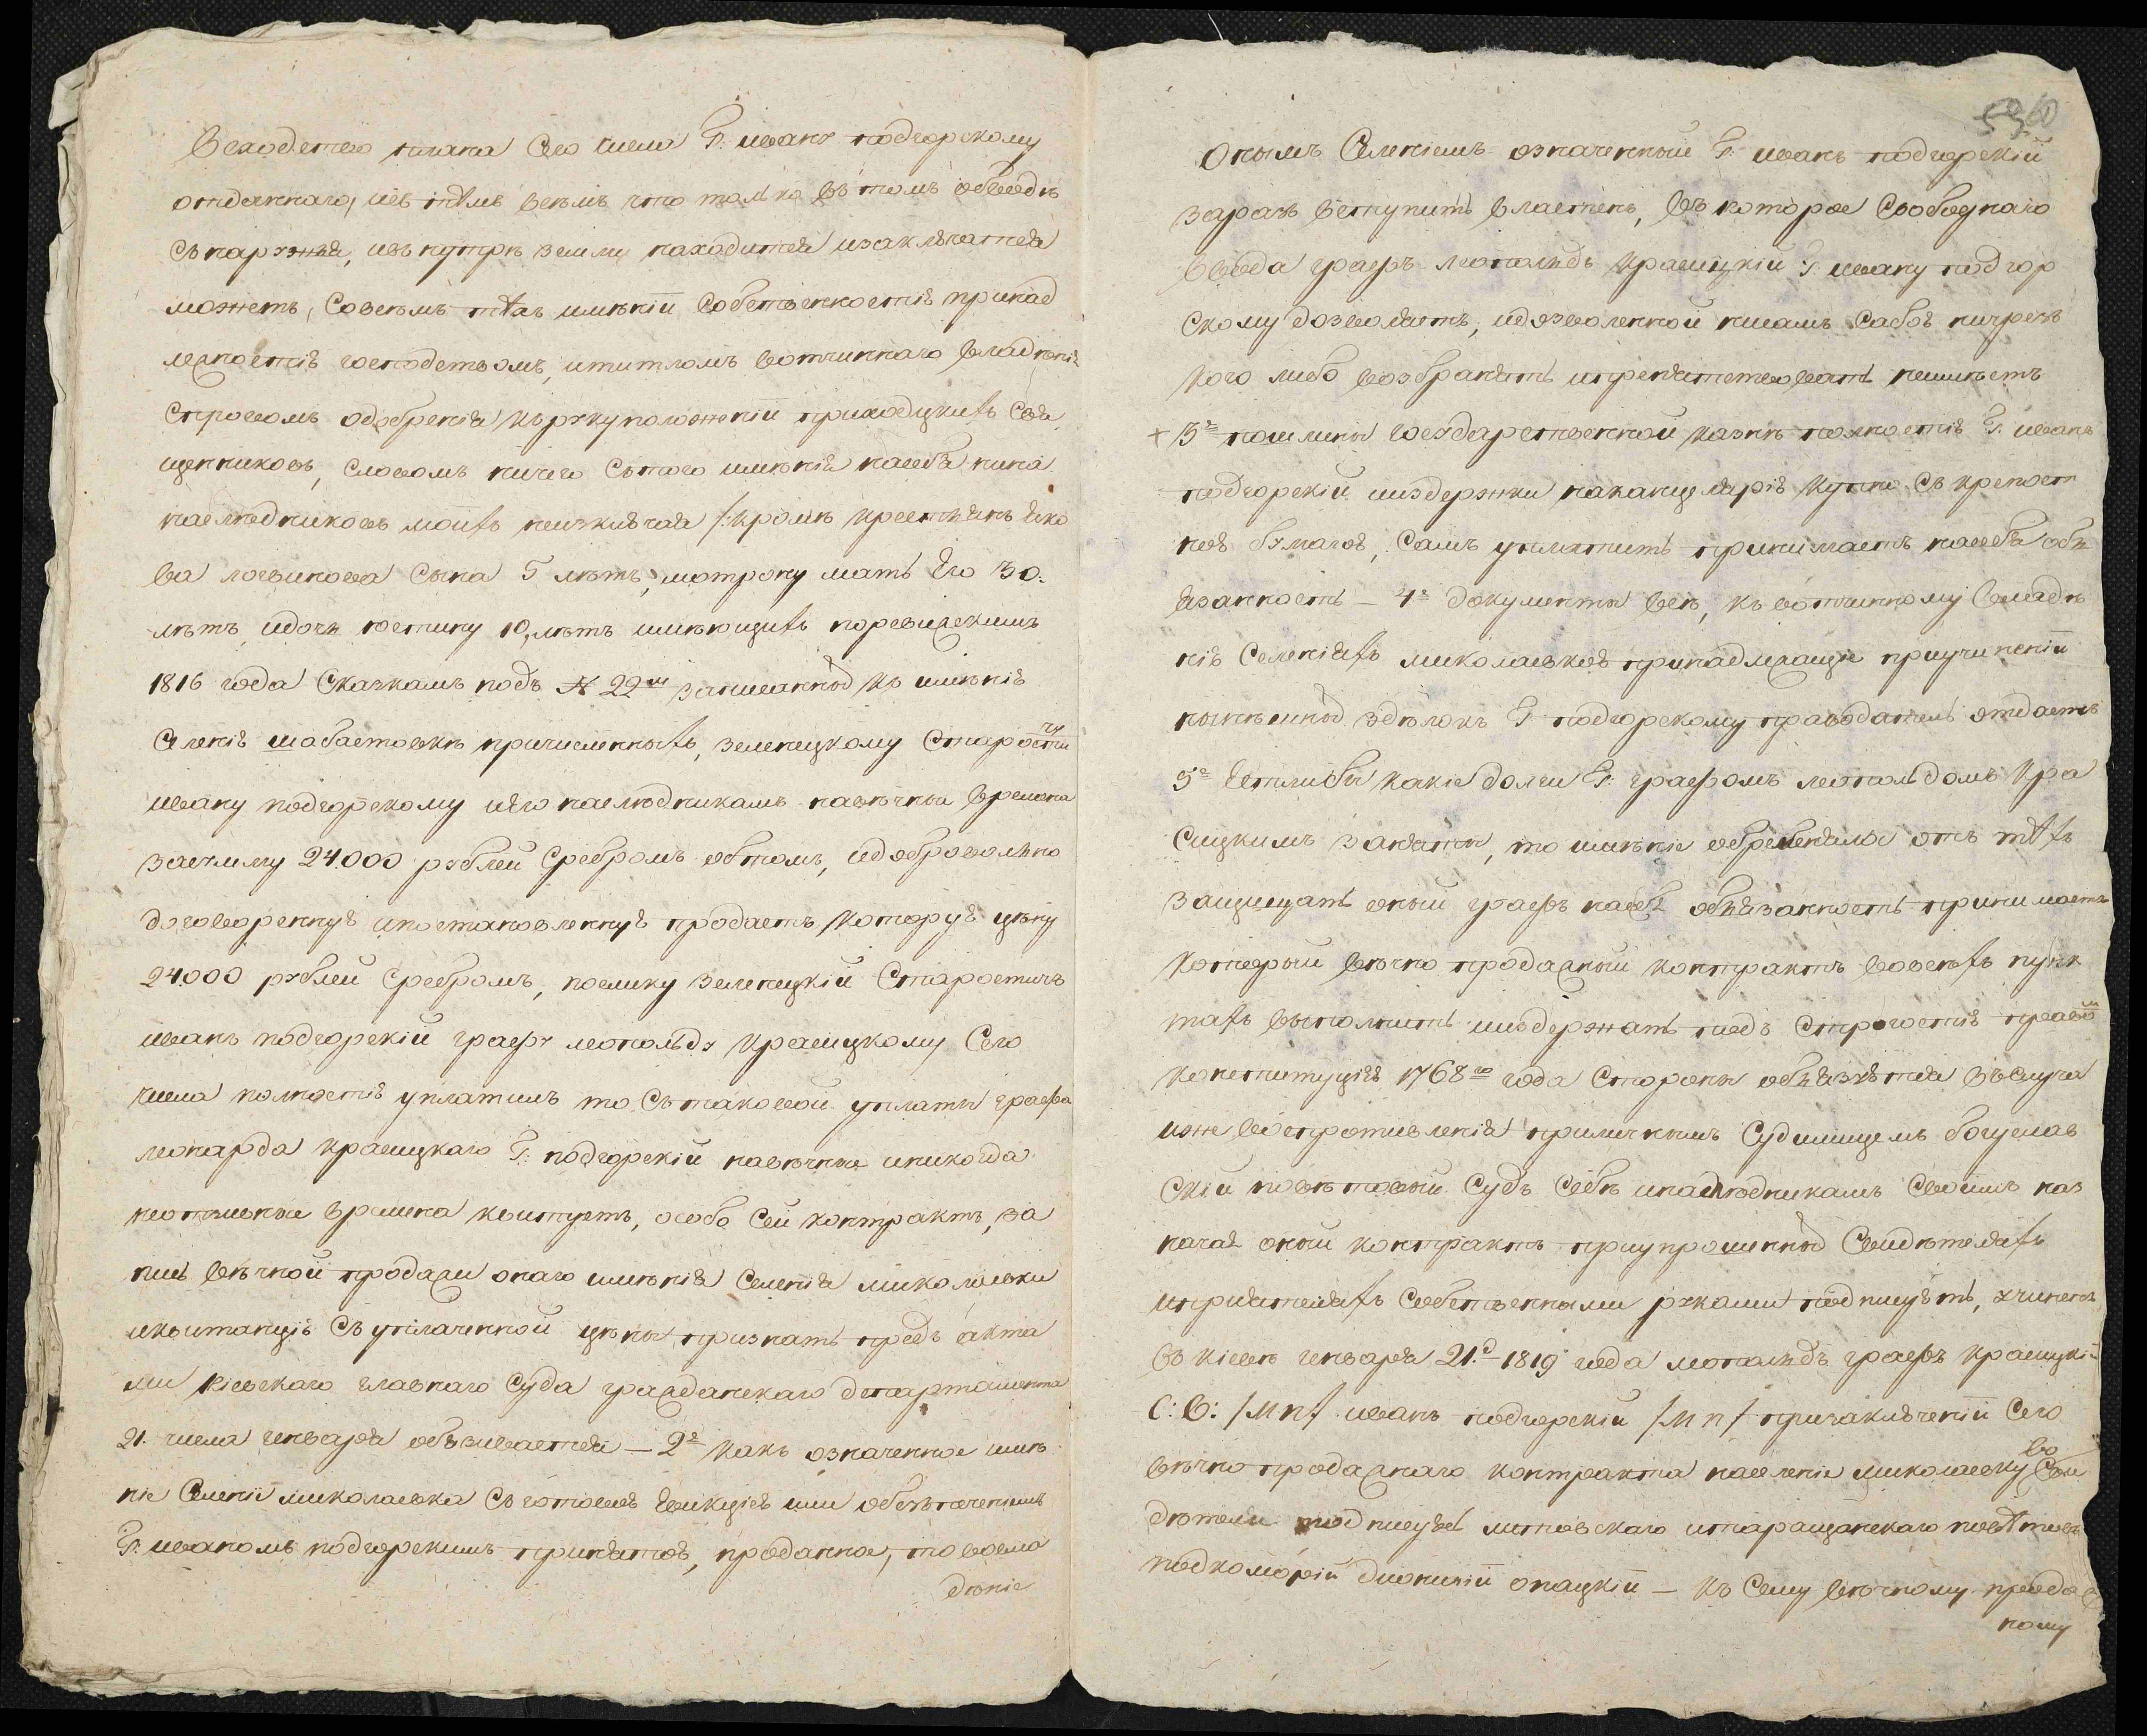 въ сходство плана Сего числа Г: ивану подгорскому
отданнаго, ивъ тѣмъ всѣмъ что только въ томъ объѣздѣ
снаружы, ивънутрѣ земли находится изаключатся
можетъ, совсѣмъ тѣхъ имѣніи собственностію принад
лежностію господствомъ, ититломъ вотчиннаго владѣнія
справомъ одобренія къ рукуположеніи приходскихъ свя
щенниковъ, словомъ ничего стого имѣнія насебя нина
наслѣдниковъ моихъ неизключая /:кромѣ крестьянъ Яко
ва логвинова сына 5 лѣтъ, мотрону мать Его 30:
лѣтъ, идочь юстину 10, лѣтъ имѣющихъ поревизскимъ
1816 года Сказкамъ подъ № 22мъ записанной къ имѣнію
Селенію шабастовкѣ причисленныхъ, зеленецкому Старостичу
ивану подгорскому иЕго наслѣдникамъ навѣчныи времена
засумму 24000 рублей сребромъ обтомъ, идобровольно
договоренную ипостановленную продаетъ которую цѣну
24000 рублей сребромъ, поелику зеленецкій Старостичъ
иванъ подгорскій графу леопольду красицкому Сего
числа полностію уплатилъ то Стаковой уплаты графа
леопарда красицкаго Г: подгорскій навѣчные иникогда
неотзывные времена квитуетъ, особо сей контрактъ, за
пись вѣчной продажи онаго имѣнія Селенія миколаевки
иквитанцію Суплаченной цѣны признать предъ акта
ми кіевскаго главнаго Суда гражданскаго департамента
21. числа генваря обязывается — 2е какъ означенное имѣ
ніе Селеніе миколаевка Сготовою Евикціею или обезпеченіемъ
Г: иваномъ подгорскимъ принятое, проданное, то вовла
дѣніе
5960
онымъ Селеніемъ означенный Г: иванъ подгорскій
заразъ вступить властенъ, въ которое Свободнаго
ввода графъ леопольдъ красицкій Г: ивану подгор
скому дозволяетъ, идозволенной ниамъ Собою ничрезъ
кого либо возбранять ипрепятствовать неимѣетъ
+ 3е пошлины государственной казнѣ полностію Г: иванъ
подгорскій ииздержки наканцелярію купно Съ крепост
ною бумагою, Самъ уплатить принимаетъ насебя обя
занность — 4е документы всѣ, къ вотчинному владѣ
нію Селеніяхъ миколаевкою принадлежащіе приучиненіи
нынѣшной здѣлокъ Г: подгорскому праводатель отдаетъ
5е Естлибы какіе долги Г: графомъ леопольдомъ кра
сицкимъ заняты, то имѣніе обременяло отъ тѣхъ
защищать оный графъ насебя обязанность принимаетъ
который вѣчно продажный контрактъ вовсѣхъ пунк
тахъ выполнить ииздержать подъ строгостію правомъ
конституціи 1768го года Стороны обязуются въслуча
иже воспротивленія приличнымъ Судилищемъ богуслав
скій повѣтовый Судъ Себѣ инаслѣдникамъ Своимъ наз
начая оный контрактъ приупрошенной Свидѣтеляхъ
ипріятеляхъ Собственными руками подписуютъ, учиненъ
въ кіевѣ генваря 21.о 1819 года леопольдъ графъ красицкій
С: В: /М п/ иванъ подгорскій /М п/ призаключеніи Сего
вѣчно продажнаго контракта населеніе миколаевку во Сви
дѣтели подписуюсь липовскаго итаращанскаго повѣтовъ
подкоморій дионизій опацкій — къ Сему вѣчному продаж
ному